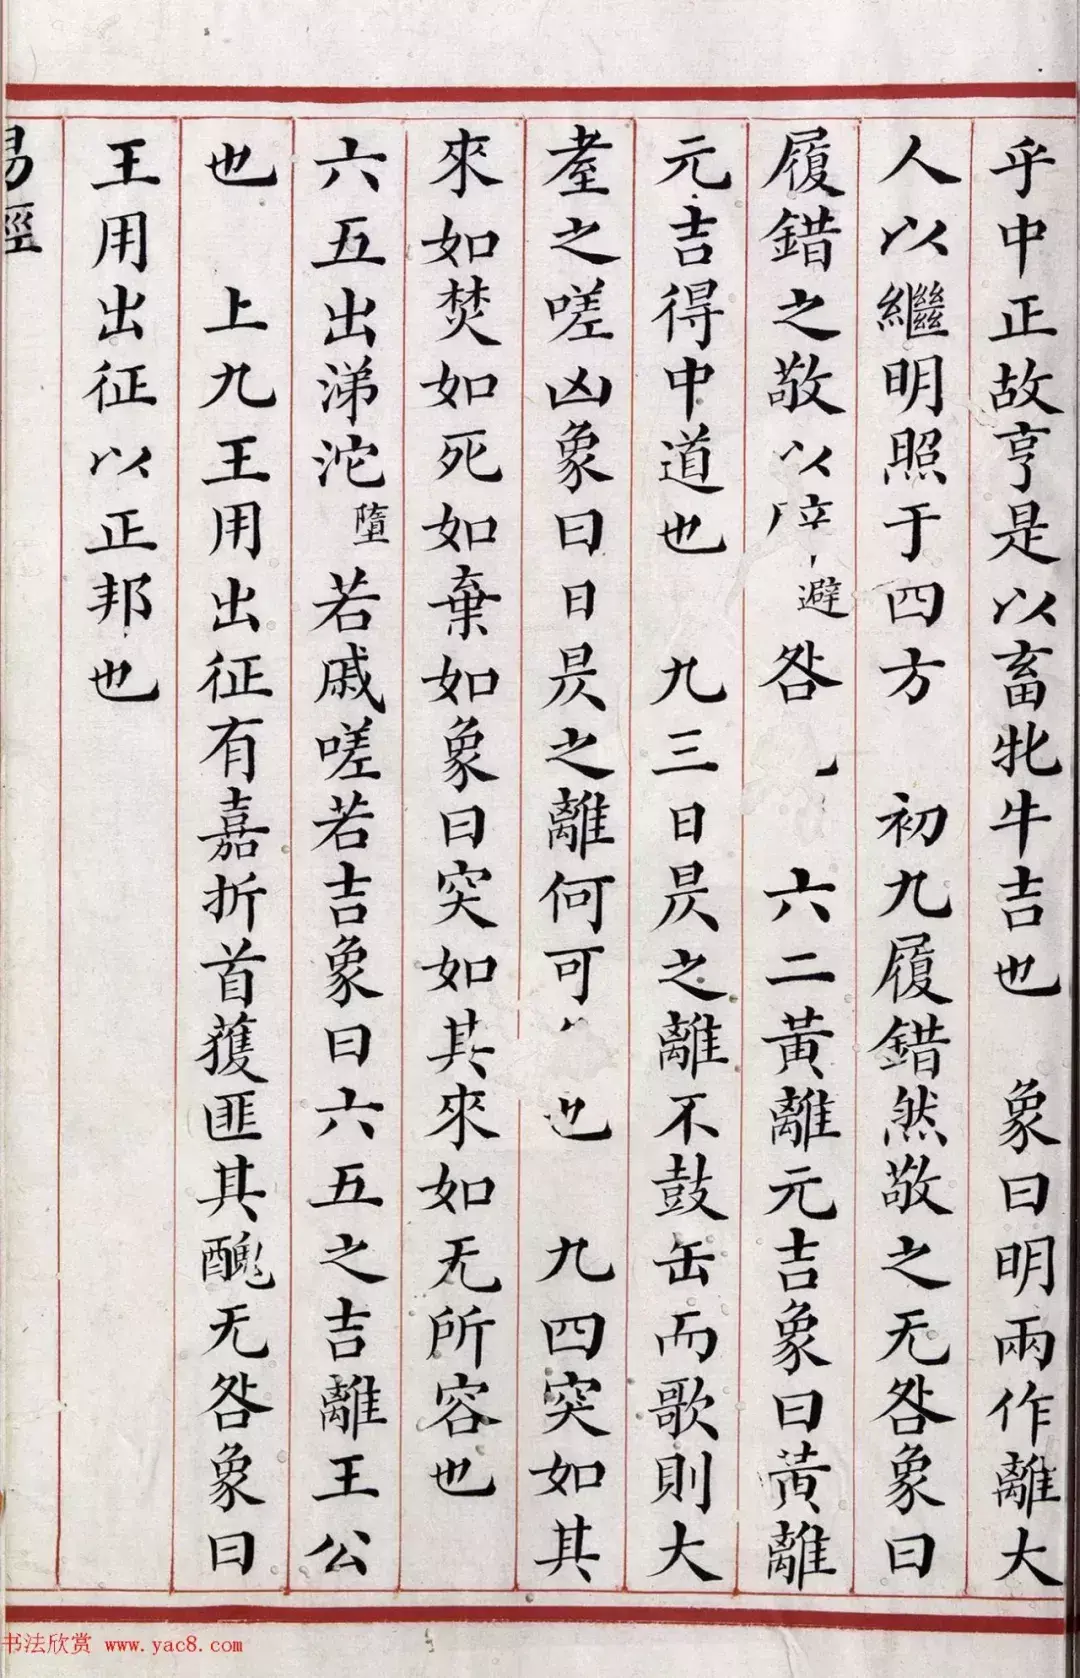 乎中正故亨是以畜牝牛吉也 象曰明兩作離大
人以繼明照于四方 初九履錯然敬之无咎象曰
履錯之敬以避咎 六二黃離元吉象曰黃離
元吉得中道也 九三日昃之離不鼓缶而歌則大
耋之嗟凶象曰日昃之離何可也 九四突如其
來如焚如死如棄如象曰突如其來如无所容也
六五出涕沱墮若戚嗟若吉象曰六五之吉離王公
也 上九王用出征有嘉折首獲匪其醜无咎象曰
王用出征以正邦也
易經
书法欣赏 www.yac8.com